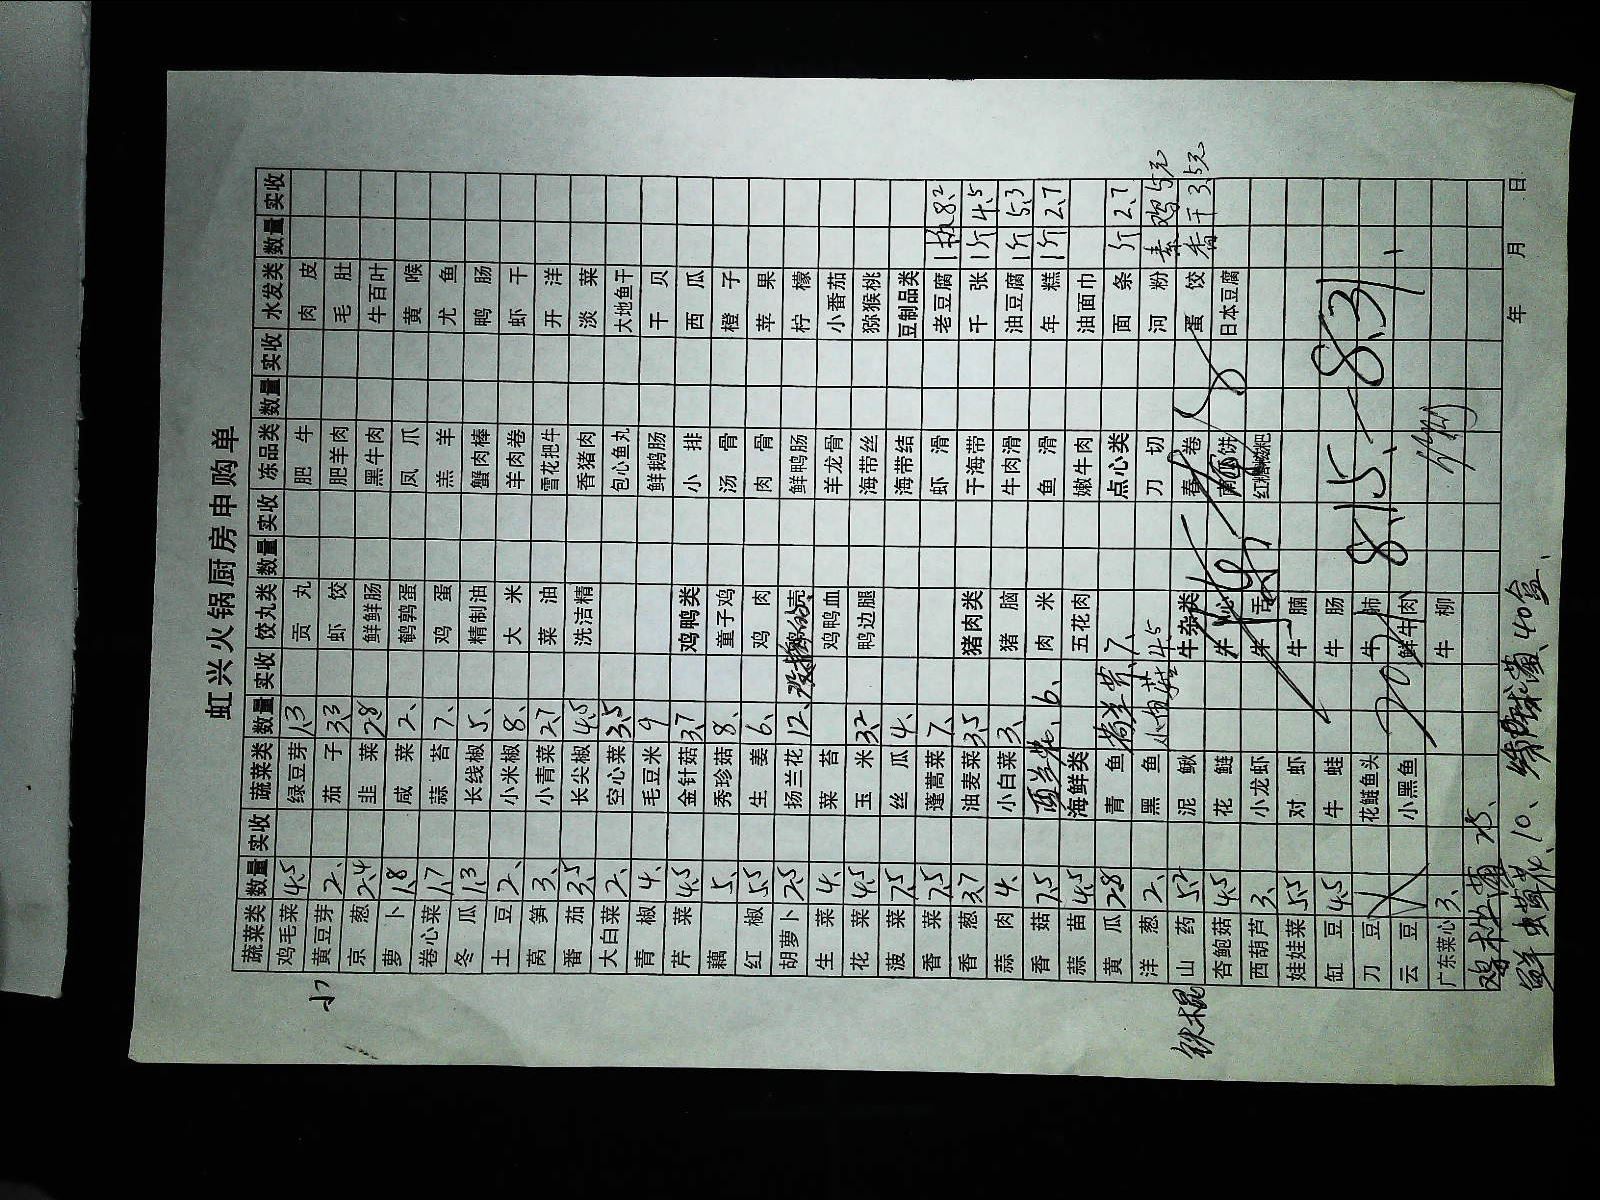 虹兴火锅厨房申购单
蔬菜类 数量 实收 蔬菜类 数量 实收 饺丸类 数量 实收 冻品类 数量 实收 水发类 数量 实收
鸡毛菜 4.5 绿豆芽 1.3 贡丸 肥牛 肉皮
黄豆芽 2、 茄子 3.3 虾饺 肥羊肉 毛肚
京葱 2.4 韭菜 2.8 鲜鲜肠 黑牛肉 牛百叶
萝卜 1.8 咸菜 2、 鹌鹑蛋 凤爪 黄喉
卷心菜 1.7 蒜苔 7、 鸡蛋 羔羊 尤鱼
冬瓜 1.3 长线椒 5、 精制油 蟹肉棒 鸭肠
土豆 2、 小米椒 8、 大米 羊肉卷 虾干
莴笋 3、 小青菜 2.7 菜油 雪花把牛 开洋
番茄 3.5 长尖椒 4.5 洗洁精 香猪肉 淡菜
大白菜 2、 空心菜 3.5 包心鱼丸 大地鱼干
青椒 4、 毛豆米 9 鲜鹅肠 干贝
芹菜 4.5 金针菇 3.7 鸡鸭类 小排 西瓜
藕 5、 秀珍菇 8、 童子鸡 汤骨 橙子
红椒 5.5 生姜 6、 鸡肉 肉骨 苹果
胡萝卜 2.5 扬兰花 12、 鲜鸭肠 柠檬
生菜 4、 菜苔 鸡鸭血 羊龙骨 小番茄
花菜 4.5 玉米 3.2 鸭边腿 海带丝 猕猴桃
菠菜 7.5 丝瓜 4、 海带结 豆制品类
香菜 7.5 蓬蒿菜 7、 虾滑 老豆腐 1板 8.2
香葱 3.7 油麦菜 3.5 猪肉类 干海带 千张 1斤 4.5
蒜肉 4、 小白菜 3、 猪脑 牛肉滑 油豆腐 1斤 5.3
香菇 7.5 西兰花 6、 肉米 鱼滑 年糕 1斤 2.7
蒜苗 4.5 海鲜类 五花肉 嫩牛肉 油面巾
黄瓜 2.8 青鱼 7、 点心类 面条 1斤 2.7
洋葱 2、 黑鱼 4.5 刀切 河粉 素鸡 5元
山药 5.2 泥鳅 牛杂类 春卷 蛋饺 香干 3.5元
杏鲍菇 4.5 花鲢 日本豆腐
西葫芦 3、 小龙虾 牛舌
娃娃菜 5.5 对虾 牛腩
缸豆 4.5 牛蛙 牛肠
刀豆 花鲢鱼头 牛肺
云豆 小黑鱼 鲜牛肉
广东菜心 3、 牛柳
铁棍
8.15—8.31
鸡枞菌 25、
鲜虫草花、10、 40盒、
年 月 日